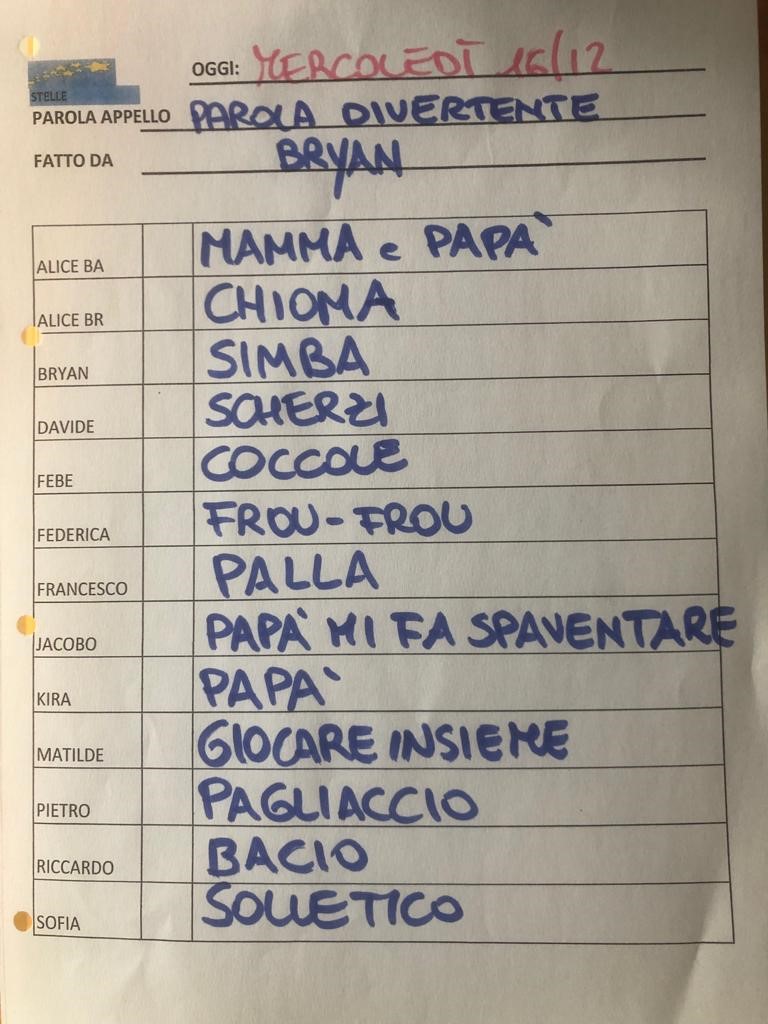 OGGI: MERCOLEDÌ 16/12
STELLE
PAROLA APPELLO PAROLA DIVERTENTE
FATTO DA BRYAN
ALICE BA MAMMA e PAPA'
ALICE BR CHIOMA
BRYAN SIMBA
DAVIDE SCHERZI
FEBE COCCOLE
FEDERICA FROU-FROU
FRANCESCO PALLA
JACOBO PAPA' MI FA SPAVENTARE
KIRA PAPA'
MATILDE GIOCARE INSIEME
PIETRO PAGLIACCIO
RICCARDO BACIO
SOFIA SOLLETICO